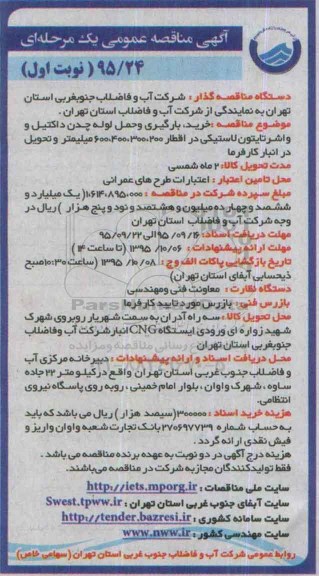 آگهی مناقصه عمومی یک مرحله‌ای
۹۵/۲۴ ( نوبت اول)
دستگاه مناقصه گذار : شرکت آب و فاضلاب جنوبغربی استان
تهران به نمایندگی از شرکت آب و فاضلاب استان تهران .
موضوع مناقصه :خرید، بارگیری وحمل لوله چدن داکتیل و
واشرتایتون لاستیکی در اقطار ۶۰۰،۴۰۰،۳۰۰،۲۰۰ میلیمتر و تحویل
در انبار کارفرما
مدت تحویل کالا: ۲ ماه شمسی
محل تامین اعتبار : اعتبارات طرح های عمرانی
مبلغ سپرده شرکت در مناقصه : ۱،۶۱۴،۸۹۵،۰۰۰( یک میلیارد و
ششصد وچهارده میلیون و هشتصد و نود و پنج هزار ) ریال در
وجه شرکت آب و فاضلاب استان تهران
مهلت دریافت اسناد: ۹۵/۰۹/۱۶ الی ۹۵/۰۹/۲۲
مهلت ارائه پیشنهادات : ۱۳۹۵/۱۰/۰۶ ( تا ساعت ۱۴ )
تاریخ بازگشایی پاکات الف وج : ۱۳۹۵/۱۰/۰۸ (ساعت ۱۰:۳۰صبح
ذیحسابی آبفای استان تهران)
دستگاه نظارت : معاونت فنی ومهندسی
بازرس فنی : بازرس مورد تایید کارفرما
محل تحویل کالا: سه راه آدران به سمت شهریار روبروی شهرک
شهید زواره ای ورودی ایستگاه CNG انبار شرکت آب وفاضلاب
جنوبغربی استان تهران
محل دریافت اسناد و ارائه پیشنهادات : دبیرخانه مرکزی آب
و فاضلاب جنوب غربی استان تهران واقع در کیلومتر ۲۲ جاده
ساوه ، شهرک واوان ، بلوار امام خمینی ، روبه روی پاسگاه نیروی
انتظامی.
هزینه خرید اسناد : ۳۰۰۰۰۰(سیصد هزار ) ریال می باشد که باید
به حساب شماره ۲۷۰۶۹۷۷۳۹ بانک تجارت شعبه واوان واریز و
فیش نقدی ارائه گردد .
هزینه درج آگهی در دو نوبت به عهده برنده مناقصه می باشد.
فقط تولیدکنندگان مجاز به شرکت در مناقصه می‌باشند.
سایت ملی مناقصات : http://iets.mporg.ir
سایت آبفای جنوب غربی استان تهران : Swest.tpww.ir
سایت سامانه کشوری : http://tender.bazresi.ir
سایت مهندسی کشور : www.nww.ir
روابط عمومی شرکت آب و فاضلاب جنوب غربی استان تهران (سهامی خاص)